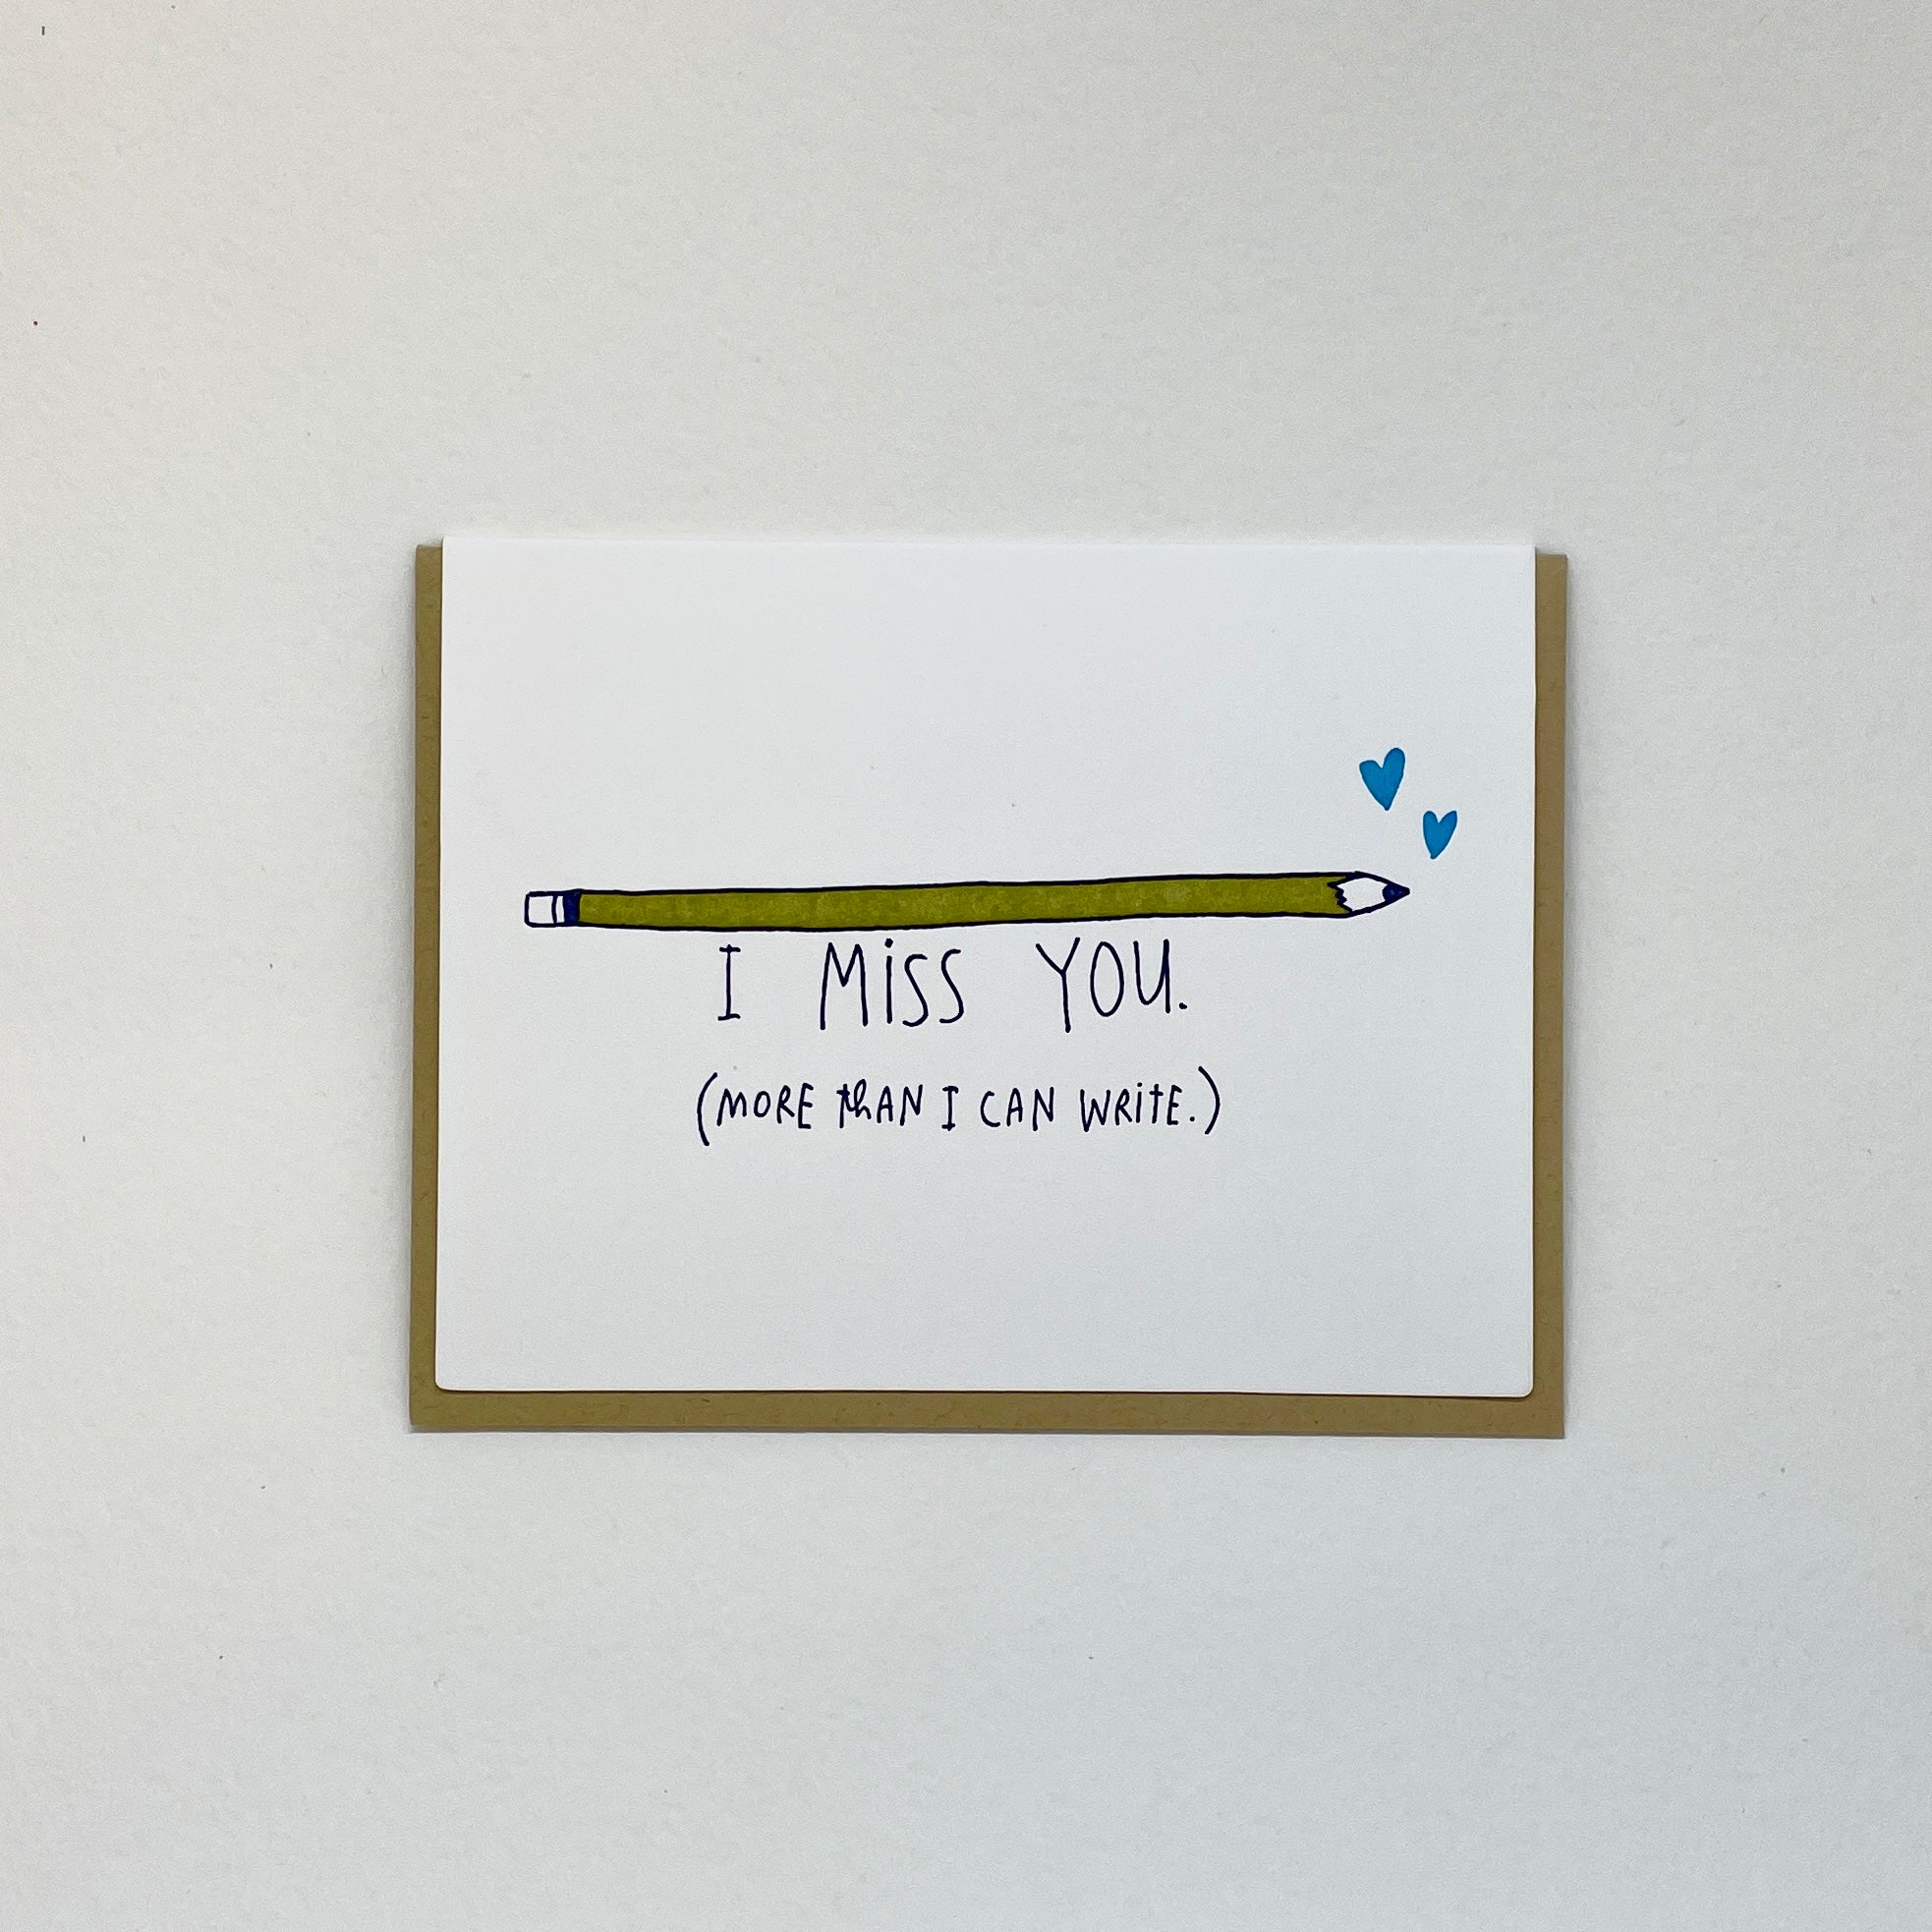 I MiSS YOU.
(MORE thAN I CAN WRitE.)